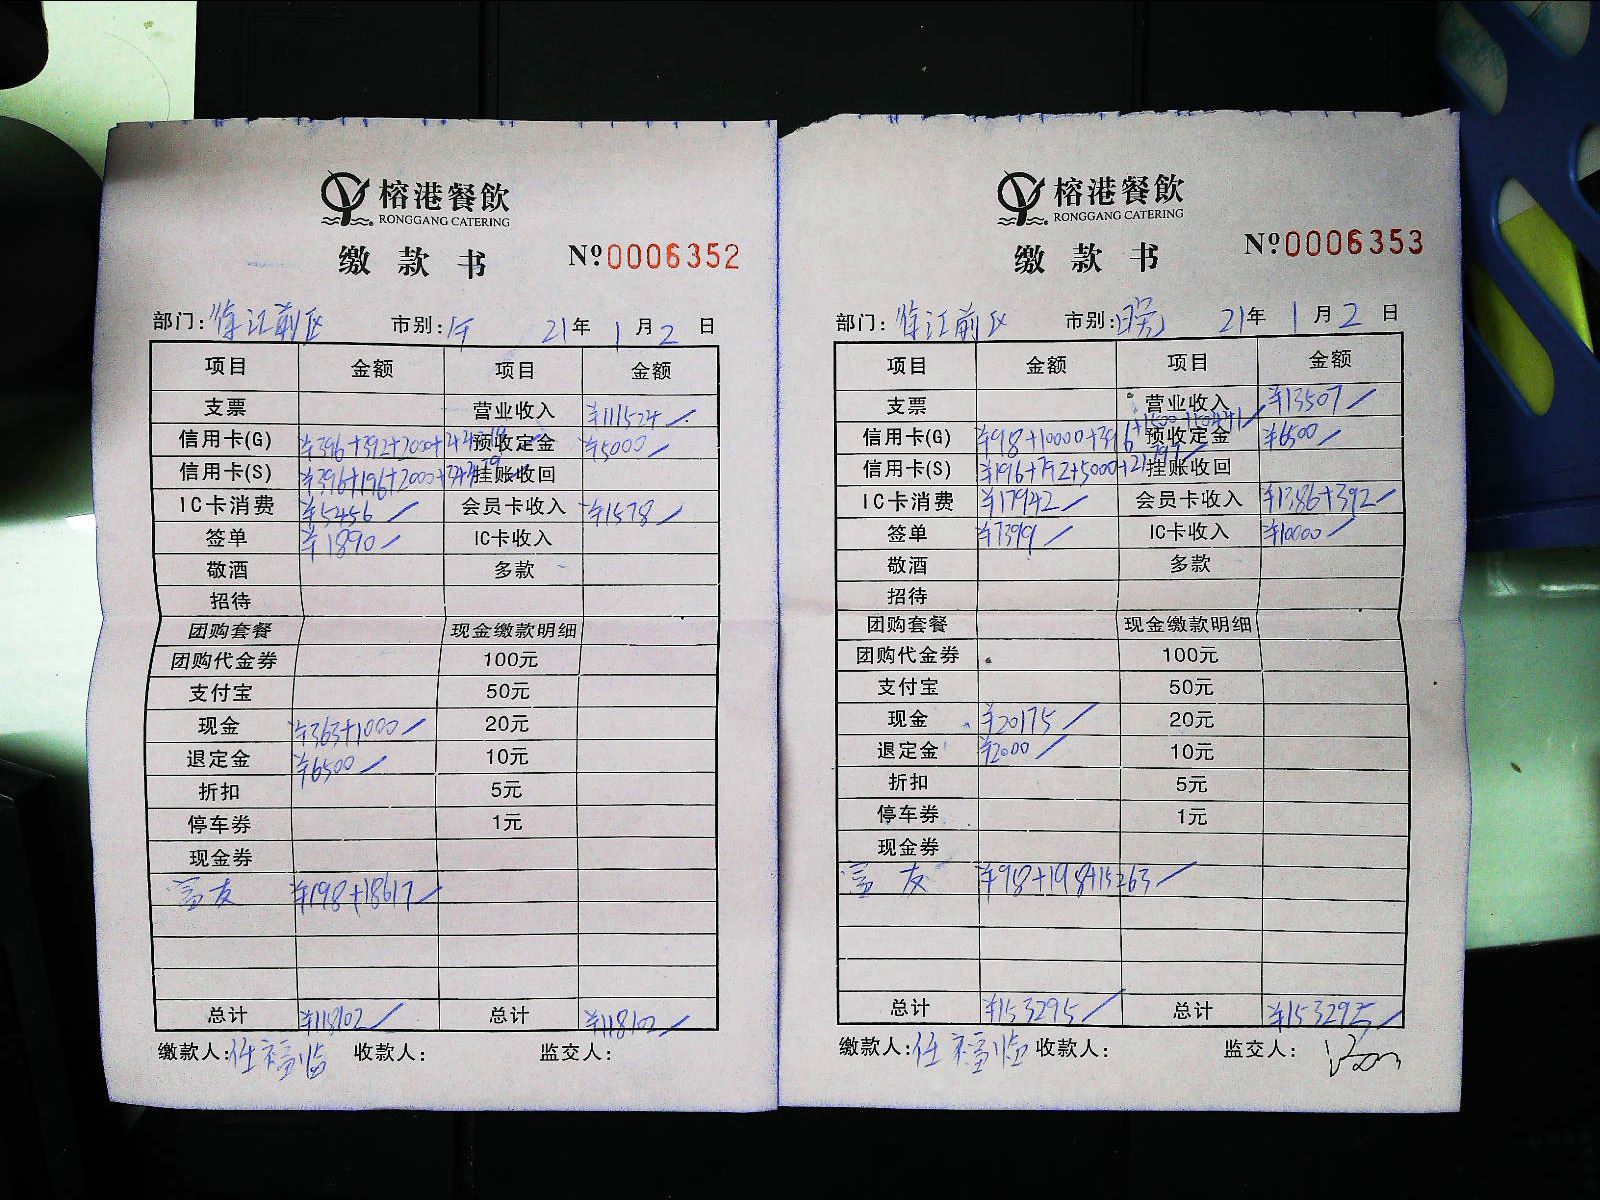 榕港餐飲
RONGGANG CATERING
缴款书 №0006352
部门: 徐江前区 市别: 午 21年1月2日
项目 金额 项目 金额
支票 营业收入 ¥111524
信用卡(G) ¥396+392+2000+ 预收定金 ¥5000
信用卡(S) ¥396+196+2000+ 挂账收回
IC卡消费 ¥5456 会员卡收入 ¥1578
签单 ¥1890 IC卡收入
敬酒 多款
招待
团购套餐 现金缴款明细
团购代金券 100元
支付宝 50元
现金 ¥363+1000 20元
退定金 ¥6500 10元
折扣 5元
停车券 1元
现金券
¥198+18617
总计 ¥118102 总计 ¥118102
缴款人: 任福临 收款人: 监交人:
榕港餐飲
RONGGANG CATERING
缴款书 №0006353
部门: 徐江前区 市别: 21年1月2日
项目 金额 项目 金额
支票 营业收入 ¥13507
信用卡(G) ¥98+10000+396 预收定金 ¥6500
信用卡(S) ¥196+792+5000+21797 挂账收回
IC卡消费 ¥17942 会员卡收入 ¥1386+392
签单 ¥7399 IC卡收入 ¥10000
敬酒 多款
招待
团购套餐 现金缴款明细
团购代金券 100元
支付宝 50元
现金 ¥20175 20元
退定金 ¥2000 10元
折扣 5元
停车券 1元
现金券
¥98+198+15263
总计 ¥153295 总计 ¥153295
缴款人: 任福临 收款人: 监交人: